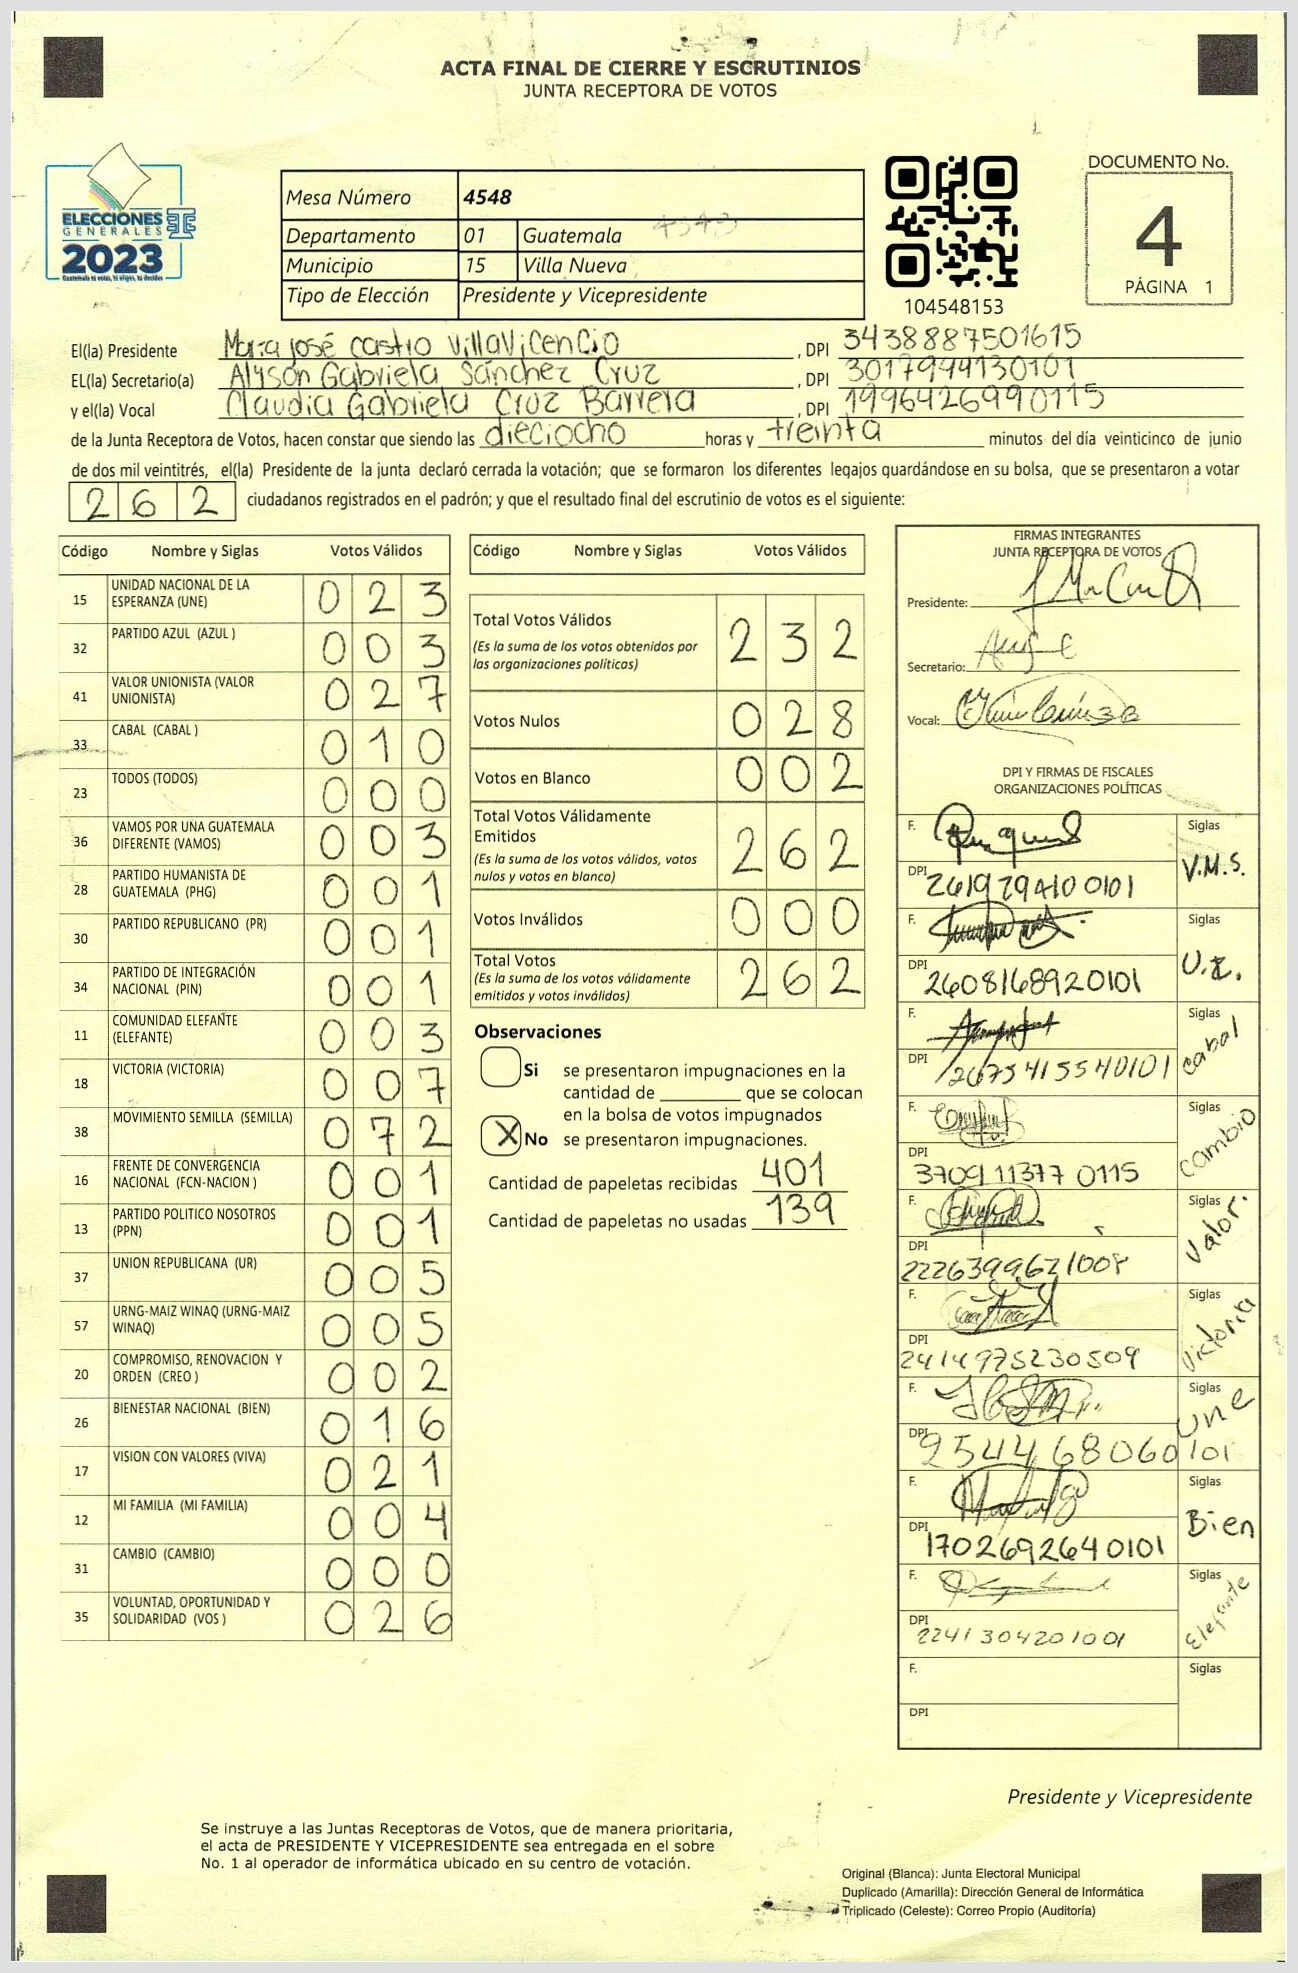 ACTA FINAL DE CIERRE Y ESCRUTINIOS
JUNTA RECEPTORA DE VOTOS
ELECCIONES
GENERALES
2023
Mesa Número 4548
Departamento 01 Guatemala
Municipio 15 Villa Nueva
Tipo de Elección Presidente y Vicepresidente
104548153
DOCUMENTO No.
4
PÁGINA 1
El(la) Presidente Maria José Castro Villavicencio, DPI 3438887501615
EL(la) Secretario(a) Alyson Gabriela Sánchez Cruz, DPI 3017994130101
y el(la) Vocal Claudia Gabriela Cruz Barrera, DPI 1996426990115
de la Junta Receptora de Votos, hacen constar que siendo las dieciocho horas y treinta minutos del día veinticinco de junio
de dos mil veintitrés, el(la) Presidente de la junta declaró cerrada la votación; que se formaron los diferentes legajos guardándose en su bolsa, que se presentaron a votar
262 ciudadanos registrados en el padrón; y que el resultado final del escrutinio de votos es el siguiente:
Código Nombre y Siglas Votos Válidos
15 UNIDAD NACIONAL DE LA ESPERANZA (UNE) 023
32 PARTIDO AZUL (AZUL ) 003
41 VALOR UNIONISTA (VALOR UNIONISTA) 027
33 CABAL (CABAL ) 010
23 TODOS (TODOS) 000
36 VAMOS POR UNA GUATEMALA DIFERENTE (VAMOS) 003
28 PARTIDO HUMANISTA DE GUATEMALA (PHG) 001
30 PARTIDO REPUBLICANO (PR) 001
34 PARTIDO DE INTEGRACIÓN NACIONAL (PIN) 001
11 COMUNIDAD ELEFANTE (ELEFANTE) 003
18 VICTORIA (VICTORIA) 007
38 MOVIMIENTO SEMILLA (SEMILLA) 072
16 FRENTE DE CONVERGENCIA NACIONAL (FCN-NACION ) 001
13 PARTIDO POLITICO NOSOTROS (PPN) 001
37 UNION REPUBLICANA (UR) 005
57 URNG-MAIZ WINAQ (URNG-MAIZ WINAQ) 005
20 COMPROMISO, RENOVACION Y ORDEN (CREO ) 002
26 BIENESTAR NACIONAL (BIEN) 016
17 VISION CON VALORES (VIVA) 021
12 MI FAMILIA (MI FAMILIA) 004
31 CAMBIO (CAMBIO) 000
35 VOLUNTAD, OPORTUNIDAD Y SOLIDARIDAD (VOS ) 026
Código Nombre y Siglas Votos Válidos
Total Votos Válidos 232
(Es la suma de los votos obtenidos por
las organizaciones políticas)
Votos Nulos 028
Votos en Blanco 002
Total Votos Válidamente
Emitidos 262
(Es la suma de los votos válidos, votos
nulos y votos en blanco)
Votos Inválidos 000
Total Votos 262
(Es la suma de los votos válidamente
emitidos y votos inválidos)
Observaciones
Si se presentaron impugnaciones en la
cantidad de ________ que se colocan
en la bolsa de votos impugnados
X No se presentaron impugnaciones.
Cantidad de papeletas recibidas 401
Cantidad de papeletas no usadas 139
FIRMAS INTEGRANTES
JUNTA RECEPTORA DE VOTOS
Presidente:
Secretario:
Vocal:
DPI Y FIRMAS DE FISCALES
ORGANIZACIONES POLÍTICAS
F. Siglas V.M.S.
DPI 2619794100101
F. Siglas
DPI 2608168920101
F. Siglas cabal
DPI 2675415540101
F. Siglas cambio
DPI 3709113770115
F. Siglas Valor.
DPI 2226399621008
F. Siglas Victoria
DPI 2414975230509
F. Siglas une
DPI 254468060101
F. Siglas Bien
DPI 1702692640101
F. Siglas Elefante
DPI 2241304201001
F. Siglas
DPI
Presidente y Vicepresidente
Se instruye a las Juntas Receptoras de Votos, que de manera prioritaria,
el acta de PRESIDENTE Y VICEPRESIDENTE sea entregada en el sobre
No. 1 al operador de informática ubicado en su centro de votación.
Original (Blanca): Junta Electoral Municipal
Duplicado (Amarilla): Dirección General de Informática
Triplicado (Celeste): Correo Propio (Auditoría)